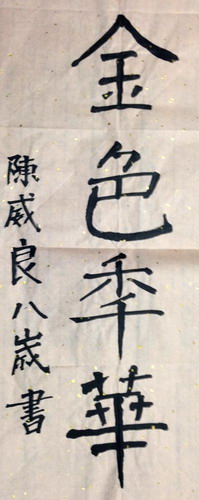 金色秊華
陳威良八歲書